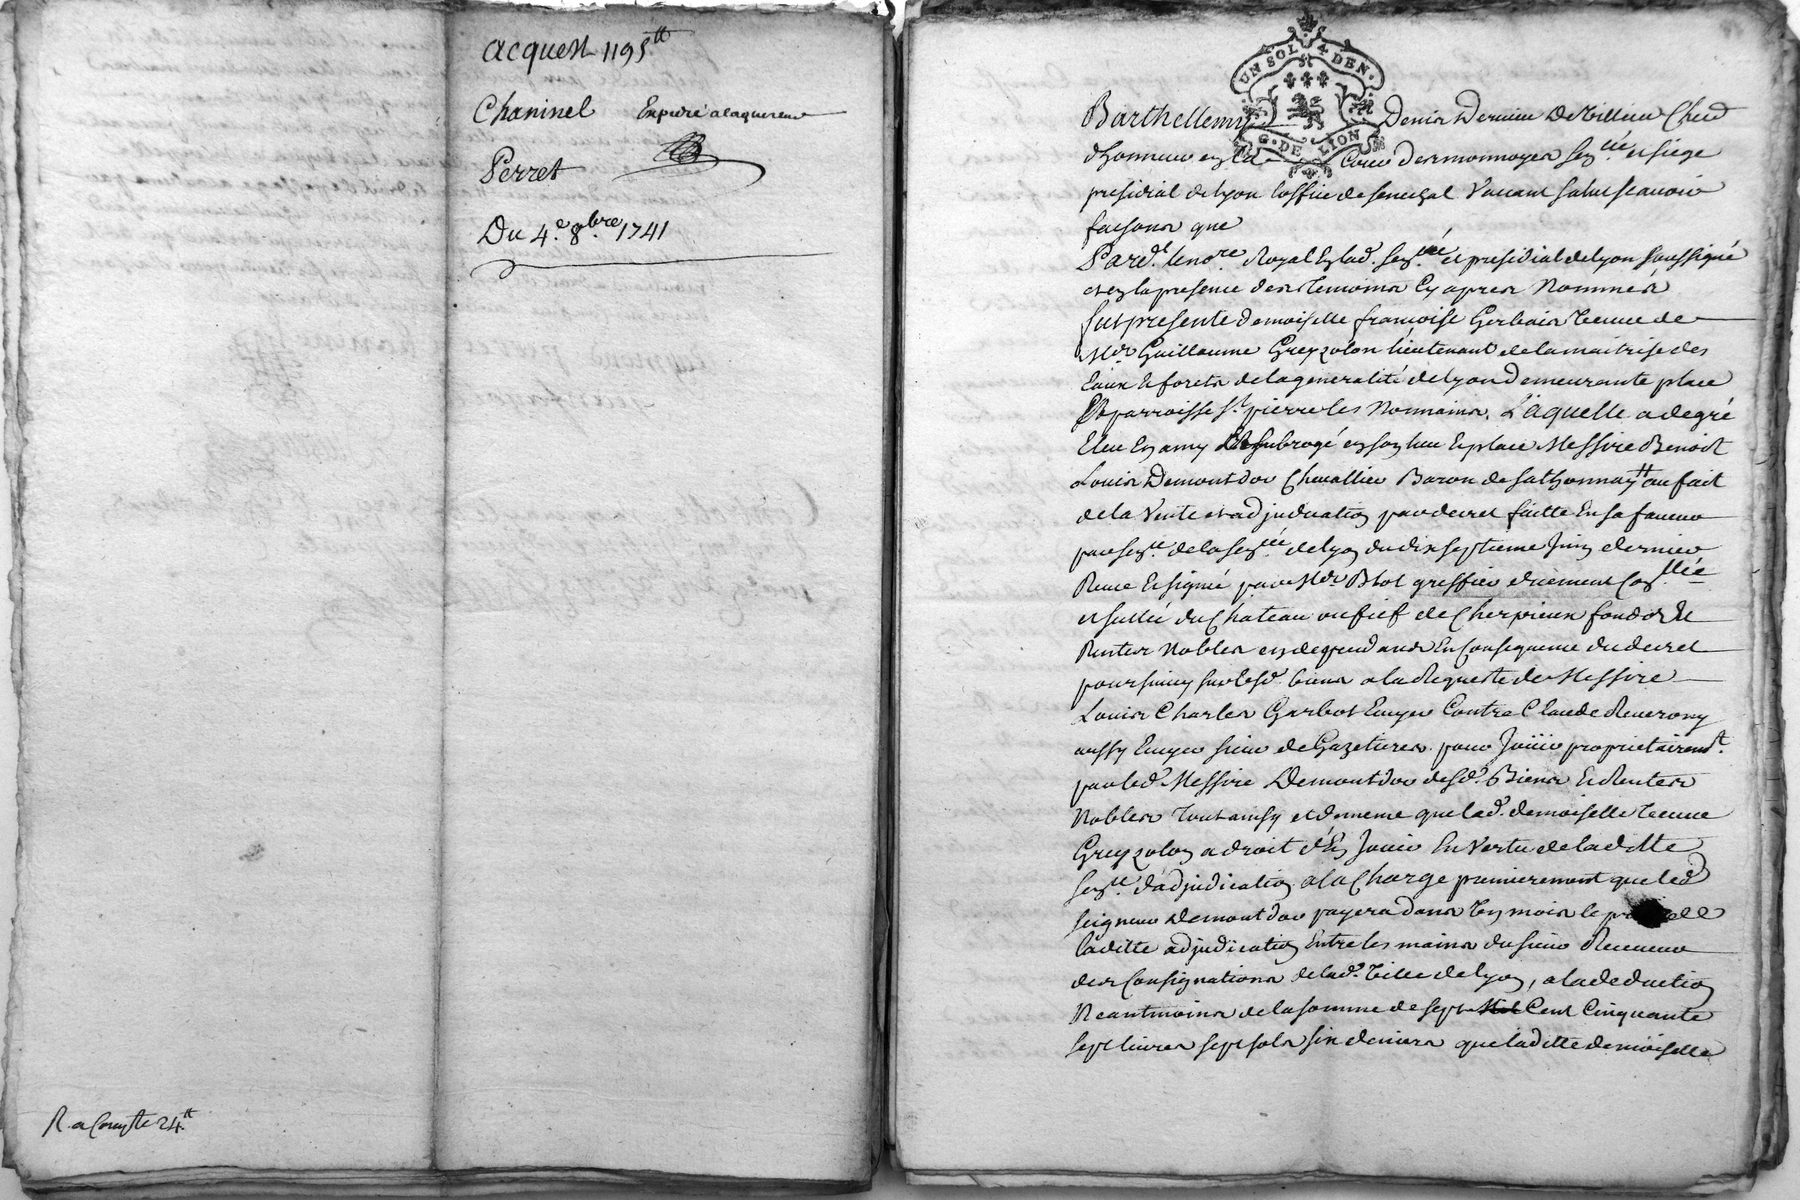 acquest 1195tt
Chaninel Expedié a laquereur
Perret
Du 4.e 8bre 1741
R. a Compte 24.tt
UN SOL 4 DEN.
G. DE LION
Barthellemy Denis Dervieu De Villieu Cher
d'honneur en la Cour des monnoyes senée et siege
presidial de lyon l'office de senechal Vacant salut scavoir
faisons que
Pard.t le no.re Royal En lad. sen.ée et presidial de lyon soussigné
et en la presence des temoins Cy apres Nommés
fut presente demoiselle françoise Gerbais veuve de
Me Guillaume Greyzolon lieutenant de la maitrise des
Eaux & forets de la generalité de lyon demeurante place
& parroisse st. pierre les Nonnains. Laquelle a de gré
Eleu En amy & subrogé en son lieu & place Messire Benoit
Louis Demontdor Chevallier Baron de sathonnay au fait
de la Vente et adjudication par decret faitte En sa faveur
par sen.ce de la sen.ée de lyon du dix septieme Juin dernier
Reçue & signée par Me Blot greffier duement Con.llée
et sellée du Chateau ou fief de Cherpieux fonds &
Rentes Nobles en dependands En Consequence du decret
poursuivy sur lesd. biens a la Requeste de Messire
Louis Charles Garbot Ecuyer Contre Claude Reverony
aussy Ecuyer sieur de Gazetieres pour Joüir proprietairemt.
par led. Messire Demontdor desd. Biens & Rentes
Nobles tout ainsy et de meme que lad. demoiselle veuve
Greyzolon a droit d'En Jouir En Vertu de la ditte
sen.ce d'adjudication a la Charge premierement que led
seigneur Demontdor payera dans Un mois le de
laditte adjudication Entre les mains du sieur Receveur
des Consignations de lad. Ville de lyon, a la deduction
Neantmoins de la somme de sept Mil Cent Cinquante
sept livres sept sols six deniers que laditte demoiselle